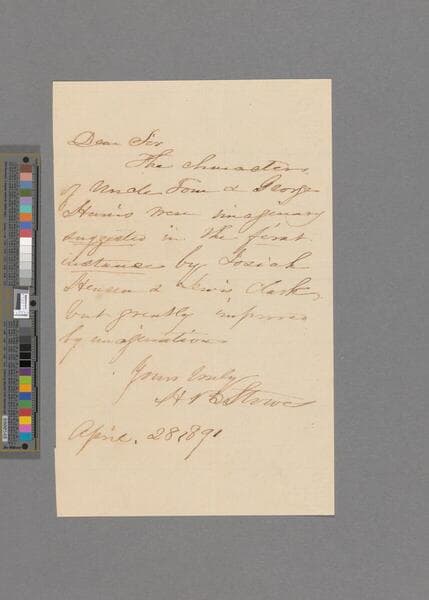 Dear Sir
The characters
of Uncle Tom & George
Harris were imaginary
suggested in the first
instance by Josiah
Henson & Lewis Clark,
but greatly improved
by imagination
Yours truly
H B Stowe
April. 28, 1891